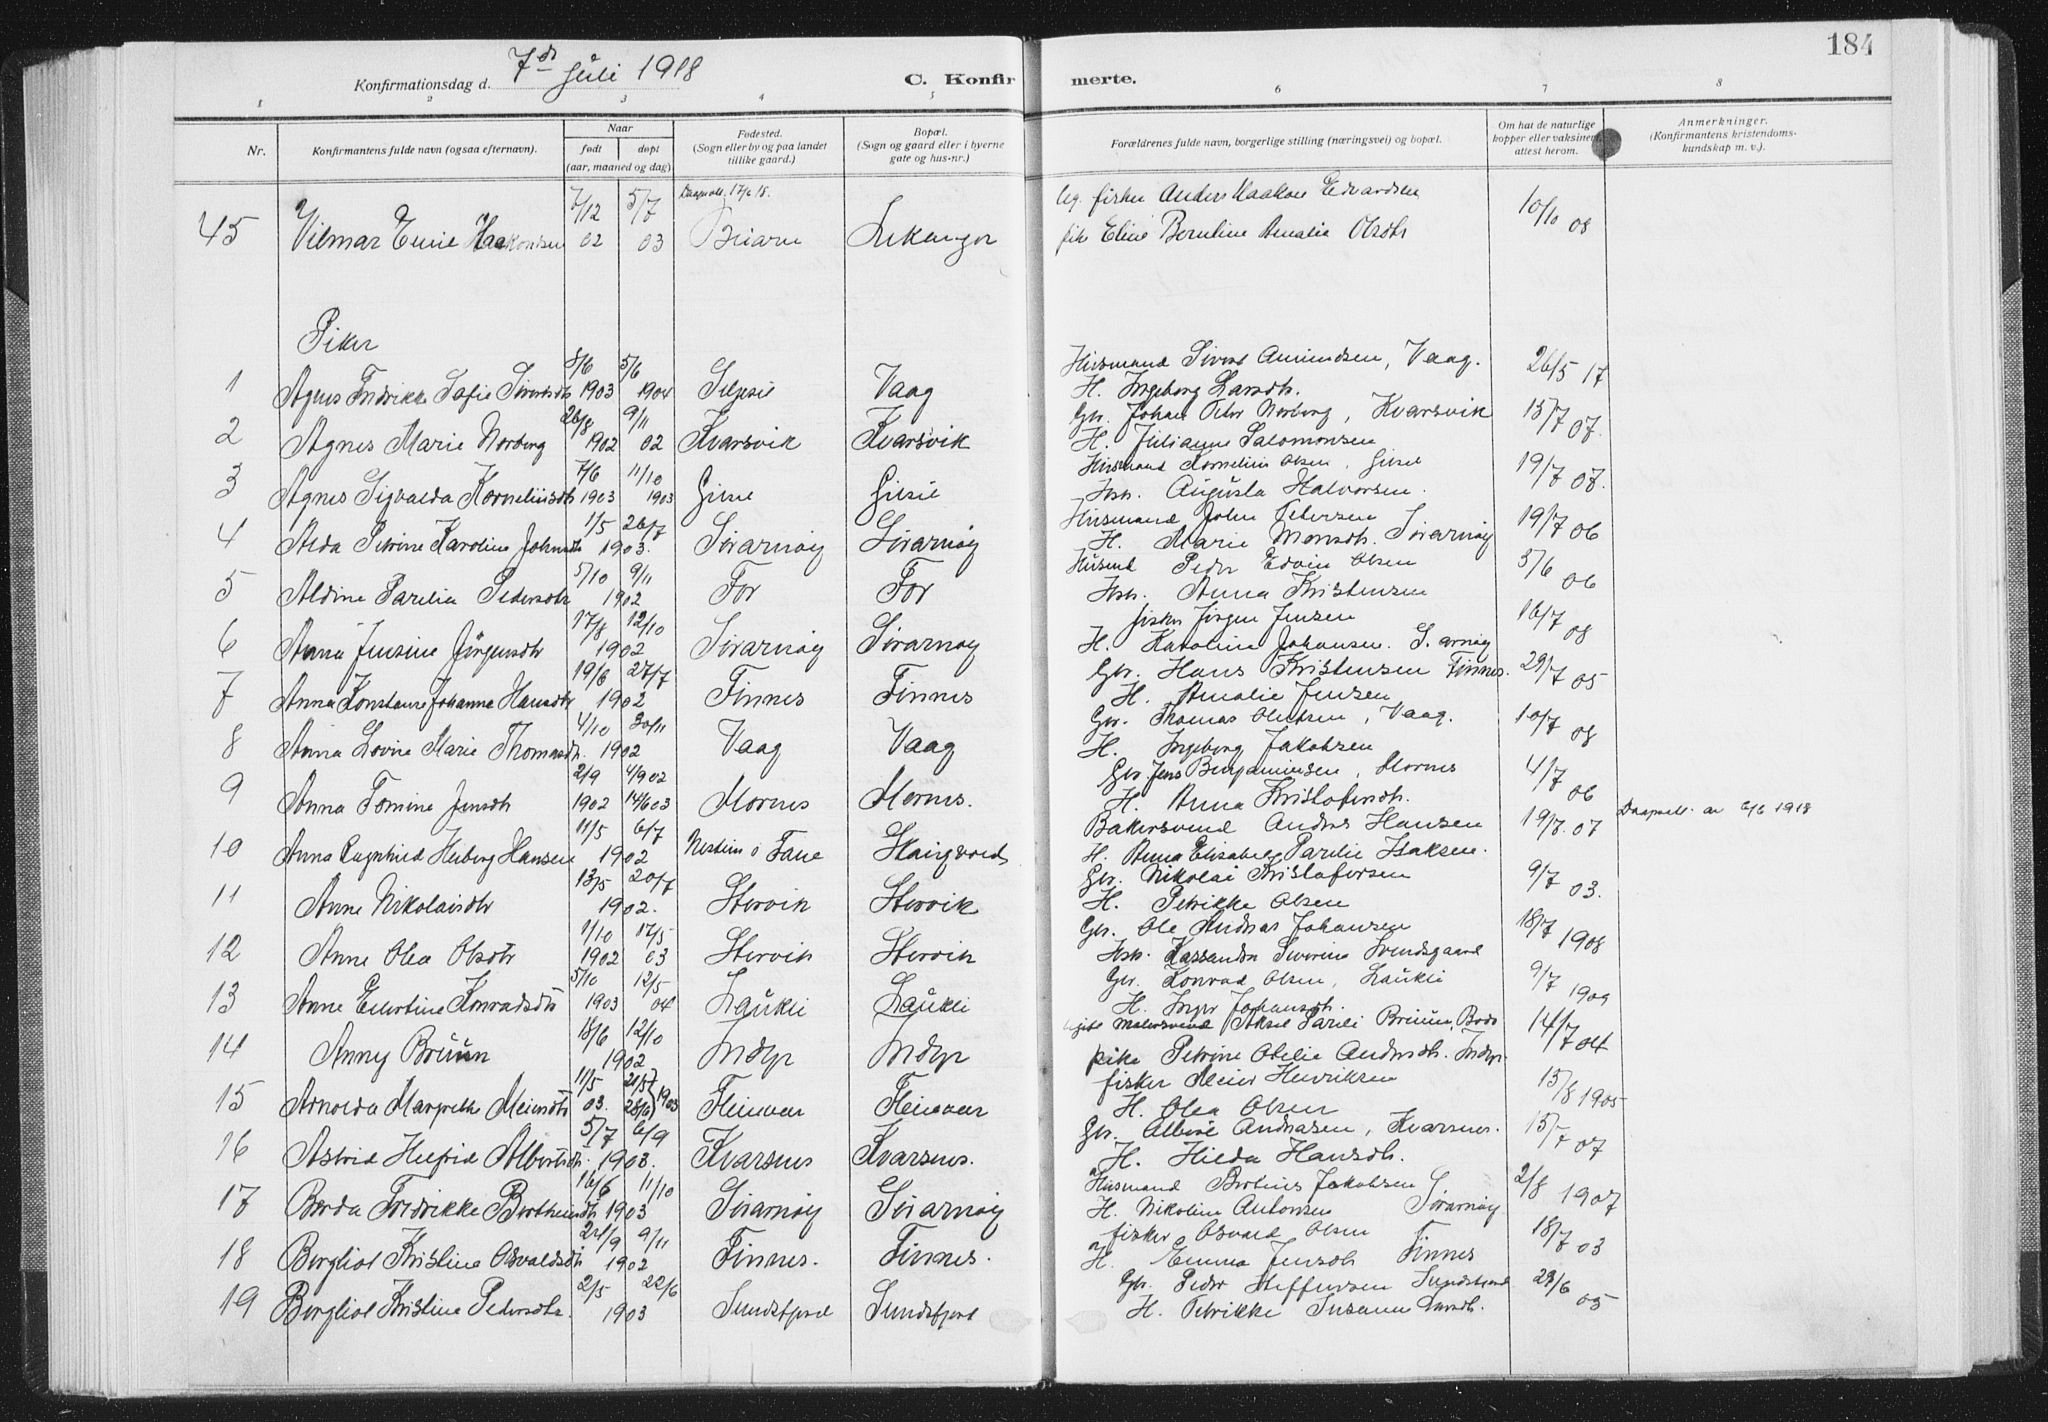 184
Konfirmationsdag d. 7de Juli 1918
C. Konfirmerte.
1 2 3 4 5 6 7 8
Nr.
Konfirmantens fulde navn (ogsaa efternavn).
Naar
født døpt
(aar, maaned og dag)
Fødested.
(Sogn eller by og paa landet
tillike gaard.)
Bopæl.
(Sogn og gaard eller i byerne
gate og hus-nr.)
Forældrenes fulde navn, borgerlige stilling (næringsvei) og bopæl.
Om hat de naturlige
kopper eller vaksinert
attest herom.
Anmerkninger.
(Konfirmantens kristendoms-
kundskap m. v.).
7/12 5/7 17/6 18. fisker Anders Haakon Edvardsen 10/10
45 Vilmar Emil Haakonsen 02 03 Beiarn Lekanger Eline Berntine Amalia Olsdtr 08
Piker
8/6 5/6 Husmand Sivert Amundsen, Vaag. 26/5 17
1 Agnes Fredrikke Sofie 1903 1904 Vaag H. Ingeborg Larsdtr.
26/8 9/11 Gbr. Johan Peter Norberg, Kvarsvik 15/7
2 Agnes Marie Norberg 1902 02 Kvarsvik Kvarsvik H. Julianne Salomonsen 07.
7/6 11/10 Husmand Kornelius Olsen, 19/7
3 Agnes Sigvalda Korneliusdtr 1903 1903 Hsh. Augusta Halvorsen. 07.
1/5 26/7 Husmand John Petersen 19/7
4 Alda Petrine Karoline Johnsdtr 1903. Sørarnøy Sørarnøy H. Marie Monsdtr. Sørarnøy 06
5/10 9/11 Husmd Peder Edvin Olsen 3/6
5 Aldine Parelia Pedersdtr 1902 For For Hsh. Anna Kristensen 06
17/8 12/10 fisker Jørgen Jensen 16/7
6 Anna Jensine Jørgensdtr 1902 Sørarnøy Sørarnøy H. Karoline Johansen. S. arnøy 08
19/6 27/7 Gbr. Hans Kristensen Finnes. 29/7
7 Anna Konstanse Johanna Hansdtr 1902 Finnes Finnes H. Amalie Jensen 05
4/10 30/11 Gbr. Thomas Olufsen, Vaag. 10/7
8 Anna Lovise Marie Thomasdtr. 1902 Vaag Vaag H. Ingeborg Jakobsen 08
2/9 4/9 02 Gbr. Jens Benjaminsen, Mornes 4/7
9 Anna Tomine Jensdtr 1902 14/6 03 Mornes Mornes. H. Anna Kristofersdtr. 06
11/5 6/7 Bakersvend Anders Hansen 19/8. 07 6/6 1918
10 Anna Ragnhild Heiberg Hansen 1902 Nesteim i Fane H. Anna Elisabet Parelie Isaksen.
13/5 20/7 Gbr. Nikolai Kristofersen 9/7
11 Anne Nikolaisdtr 1902. Storvik Storvik H. Petrikke Olsen 03.
1/10 17/5 Gbr. Ole Andreas Johansen 18/7
12 Anne Olea Olsdtr 1902 03 Storvik Storvik Hsh. Kassandra Severine Svendsgaard 1908
5/10 12/5 Gbr. Konrad Olsen, Laukli 9/7
13 Anne Edvartine Konradsdtr 1903 04 Laukli Laukli H. Inger Johansdtr. 1909
18/6 12/10 ugift Malersvend Aksel Pareli Bruun, Bodø 14/7
14 Anny Bruun 1902 Indyr Indyr pike Petrine Otelie Andersdtr. Indyr 04
11/5 21/5 fisker Meier Henriksen 15/8
15 Arnolda Margrethe Meiersdtr 03. 28/6 1903 Fleinvær Fleinvær H. Olea Olsen 1905
5/7 6/9 Gbr. Albert Andreasen, Kvarsnes. 15/7
16 Astrid Helfrid Albertsdtr. 1903. Kvarsnes Kvarsnes. H. Hilda Hansdtr. 07
16/6 11/10 Husmand Jakobsen 2/8
17 Berda Fredrikke 1903 Sørarnøy Sørarnøy H. Nikoline Antonsen Sørarnøy 1907
24/9 9/11 fisker Osvald Olsen 18/7
18 Bergliot Kristine Osvaldsdtr 1902 Finnes. Finnes. H. Emma Jensdtr Finnes 03
2/5 22/6 Gbr. Peder Steffensen Sundsfjord 29/6
19 Bergliot Kristine Pedersdtr. 1903 Sundsfjord Sundsfjord H. Petrikke Susanne Larsdtr. 05